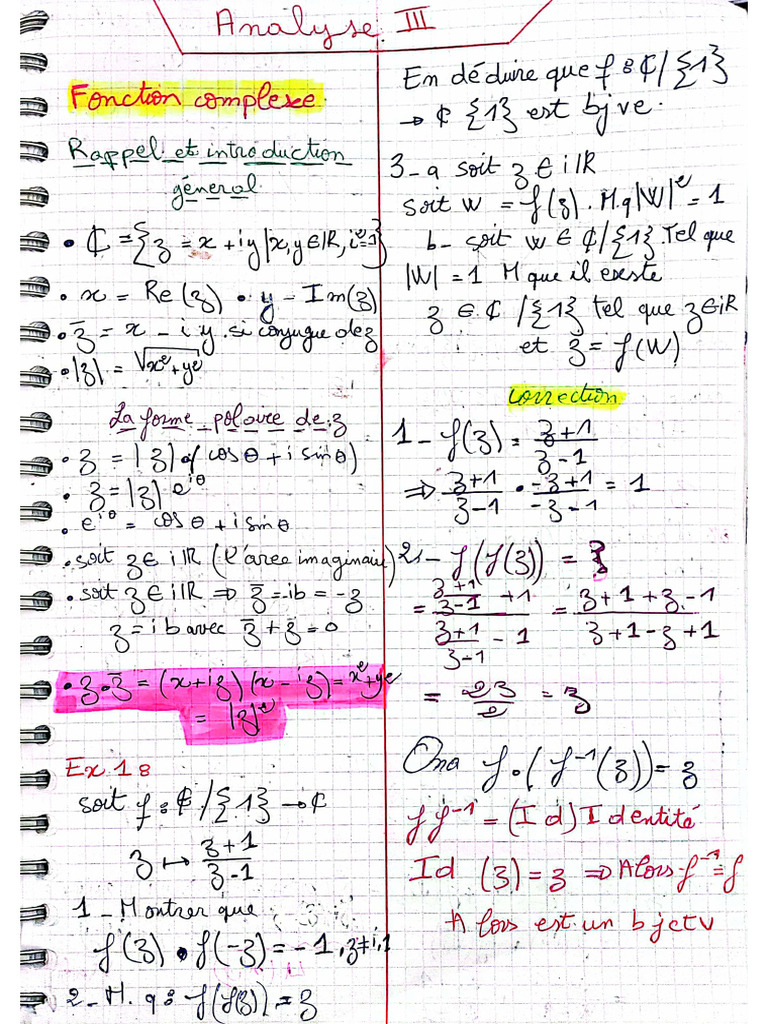 Analyse III
Fonction complexe
Rappel et introduction
géneral
• ₵ = {z = x + iy | x, y ∈ IR, i² = 1}
• x = Re(z) • y - Im(z)
• z̄ = x - iy. si conjugue de z
• |z| = √(x² + y²)
La forme polaire de z
• z = |z| • (cos θ + i sin θ)
• z = |z| e^{iθ}
• e^{iθ} = cos θ + i sin θ
• soit z ∈ iIR (l'axee imaginair)
• soit z ∈ iIR ⇒ z̄ = ib = -z
z = ib avec z̄ + z = 0
• z • z̄ = (x + iz)(x - iz) = x² + y²
= |z|²
Ex 1 :
soit f : ₵ / {1} → ₵
z ↦ (z + 1)/(z - 1)
1 - Montrer que
f(z) • f(-z) = -1, z ≠ i, 1
2 - M. q : f(f(z)) = z
En déduire que f : ₵ / {1}
→ ₵ {1} est bjve.
3 - a soit z ∈ iIR
soit w = f(z). M.q |W|² = 1
b - soit w ∈ ₵ / {1}. Tel que
|W| = 1 M que il existe
z ∈ ₵ / {1} tel que z ∈ iR
et z = f(W)
correction
1 - f(z) = (z + 1)/(z - 1)
⇒ (z + 1)/(z - 1) • (-z + 1)/(-z - 1) = 1
2 - f(f(z)) = z
= ((z + 1)/(z - 1) + 1)/((z + 1)/(z - 1) - 1) = (z + 1 + z - 1)/(z + 1 - z + 1)
= 2z/2 = z
Ona f • (f⁻¹(z)) = z
f f⁻¹ = (Id) Identité
Id (z) = z ⇒ Alors f⁻¹ = f
Alors est un bjctv